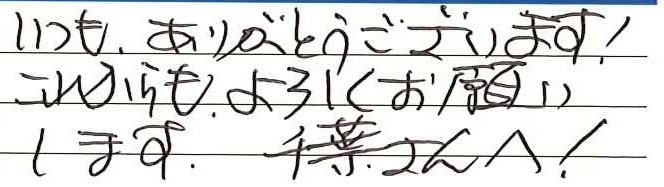 いつも、ありがとうございます!
これからも、よろしくお願い
します. 千葉さんへ!